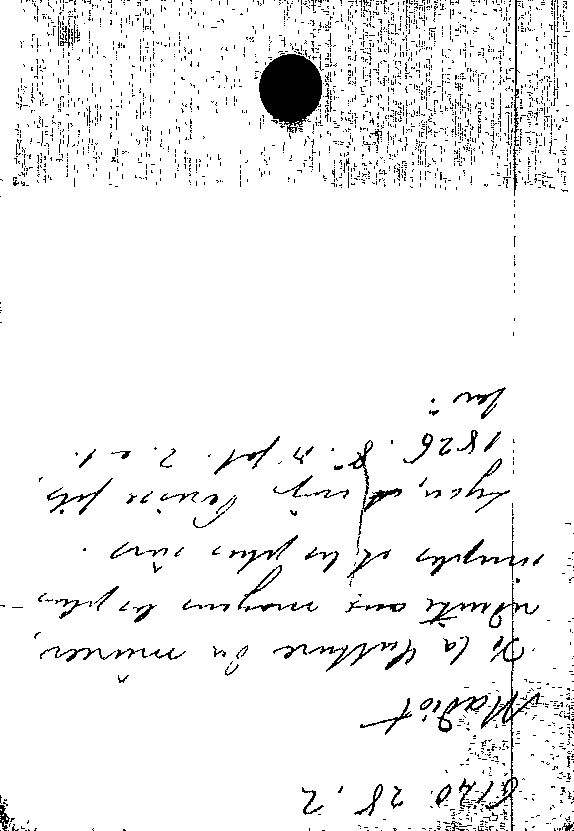 6120. 28. 2
Madiot
De la Culture du mûrier,
réduite aux moyens les plus
simples et les plus sûrs.
Lyon, impr. Perisse fils,
1826. 8°.